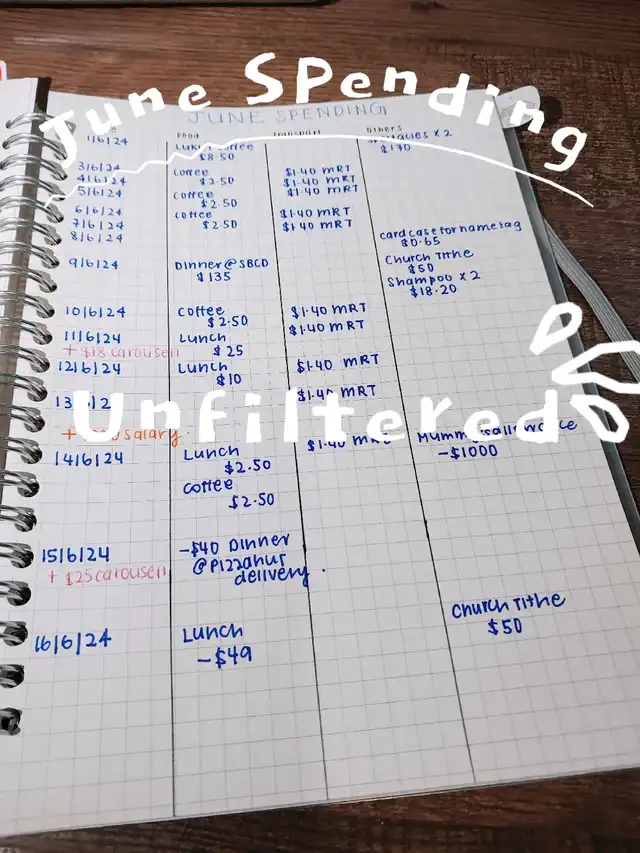 June Spending
JUNE SPENDING
Food Transport Others
1/6/24 coffee × 2
$8.50 $170
3/6/24 coffee $1.40 MRT
4/6/24 $2.50 $1.40 MRT
5/6/24 coffee $1.40 MRT
$2.50
6/6/24 coffee $1.40 MRT
7/6/24 $2.50 $1.40 MRT
8/6/24 card case for name tag
$0.65
9/6/24 Dinner @ SBCD Church Tithe
$135 $50
Shampoo × 2
$18.20
10/6/24 coffee $1.40 MRT
$2.50 $1.40 MRT
11/6/24 Lunch
+ $18 carousell $25
12/6/24 Lunch $1.40 MRT
$10
$1.40 MRT
Unfiltered
salary
14/6/24 Lunch $1.40 MRT
$2.50 -$1000
coffee
$2.50
15/6/24 -$40 Dinner
+ $25 carousell @ Pizzahut
delivery.
16/6/24 Lunch Church Tithe
-$49 $50